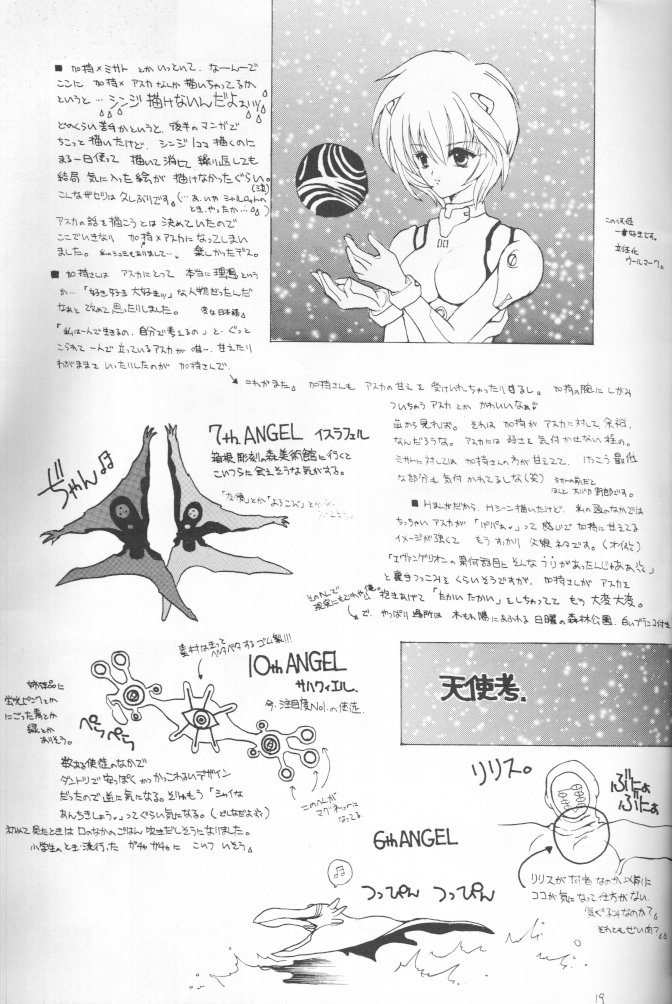 ■ 加持×ミサト とかいっといて、なーんーで
ここに 加持×アスカなんか描いちゃってるか
というと… シンジ描けないんだよぉぃッ
どのくらい苦手かというと、後半のマンガで
ちこっと描いたけど、シンジ1コマ描くのに
まる一日使って 描いて消して 繰り返しても
結局 気に入った絵が 描けなかったぐらい。(泣)
こんなザセツは久しぶりです。
アスカの話を描こうとは 決めていたので
ここでいきなり 加持×アスカになってしまい
ました。 楽しかったデス。
■ 加持さんは アスカにとって 本当に理想という
か…「好き好き 大好きッ」な人物だったんだ
なぁと 改めて思ったりしました。 変な日本語
「私は一人で生きるの、自分で考えるの」と、ぐっと
こらえて 一人で立っているアスカが 唯一、甘えたり
わがままを いったりしたのが 加持さんで、
この使徒
一番好きです。
ウールマーク。
これがまた。 加持さんも アスカの甘えを 受けいれちゃったりするし。 加持の腕に しがみ
ついちゃう アスカとか かわいいなぁ
なんだろうな。 アスカには 好きと 気付かせない 位の。
ミサトに対しては 加持さんの方が 甘えてて、けっこう 最低
な部分も 気付かれてるしな(笑)
■ Hほんだから、Hシーン描いたけど、私の頭のなかでは
ちっちゃいアスカが 「パパぁ」って感じで 加持に甘えてる
イメージが強くて もうすっかり 父娘ネタです。(オイ)
「エヴァンゲリオンの 第何話目に そんなうりがあったんじゃぁぁ」
と 裏手つっこみを くらいそうですが、加持さんが アスカを
抱きあげて 「たかいたかい」をしちゃってて もう大変大変。
で、やっぱり場所は 木もれ陽にあふれる 日曜の森林公園、白いブランコ付き
7th ANGEL イスラフェル
箱根彫刻の森美術館に行くと
こいつらに会えそうな気がする。
「友情」とか「よろこび」とか
ぢゃん♫
10th ANGEL
サハクィエル。
今、注目度No.1の使徒
素材は きっと
ペタペタするゴム製!!!
姉妹品に
蛍光ピンクとか
にごった青とか
緑とか
ありそう。
ぺら
ぺら
数ある使徒のなかで
ダントツで安っぽくかっこわるいデザイン
だったので逆に気になる。それはもう「シャイな
あんちきしょう」ってぐらい気になる。(どんなだよ)
初めて見たときは 口のなかのごはん吹きだしそうになりました。
小学生のとき 流行った ガチャガチャに こいつ いそう。
このへんが
マグネットに
なってる
天使考.
リリス。
ぶにょ
ぶにょ
リリスが 何者なのか以前に
ココが気になって仕方がない
着ぐるみなのか?
それともぜい肉?
6th ANGEL
♫
つっぴん つっぴん
19